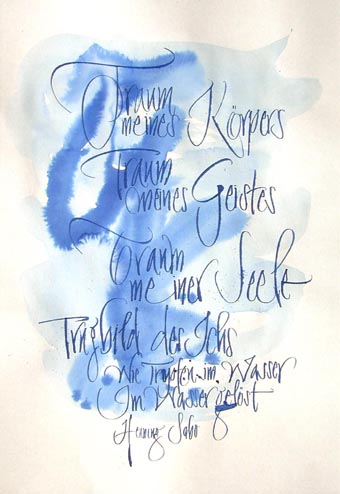 Traum
meines Körpers
Traum
meines Geistes
Traum
meiner Seele
Trugbild des Ichs
Wie Tropfen im Wasser
Im Wasser gelöst
Henning Sabo